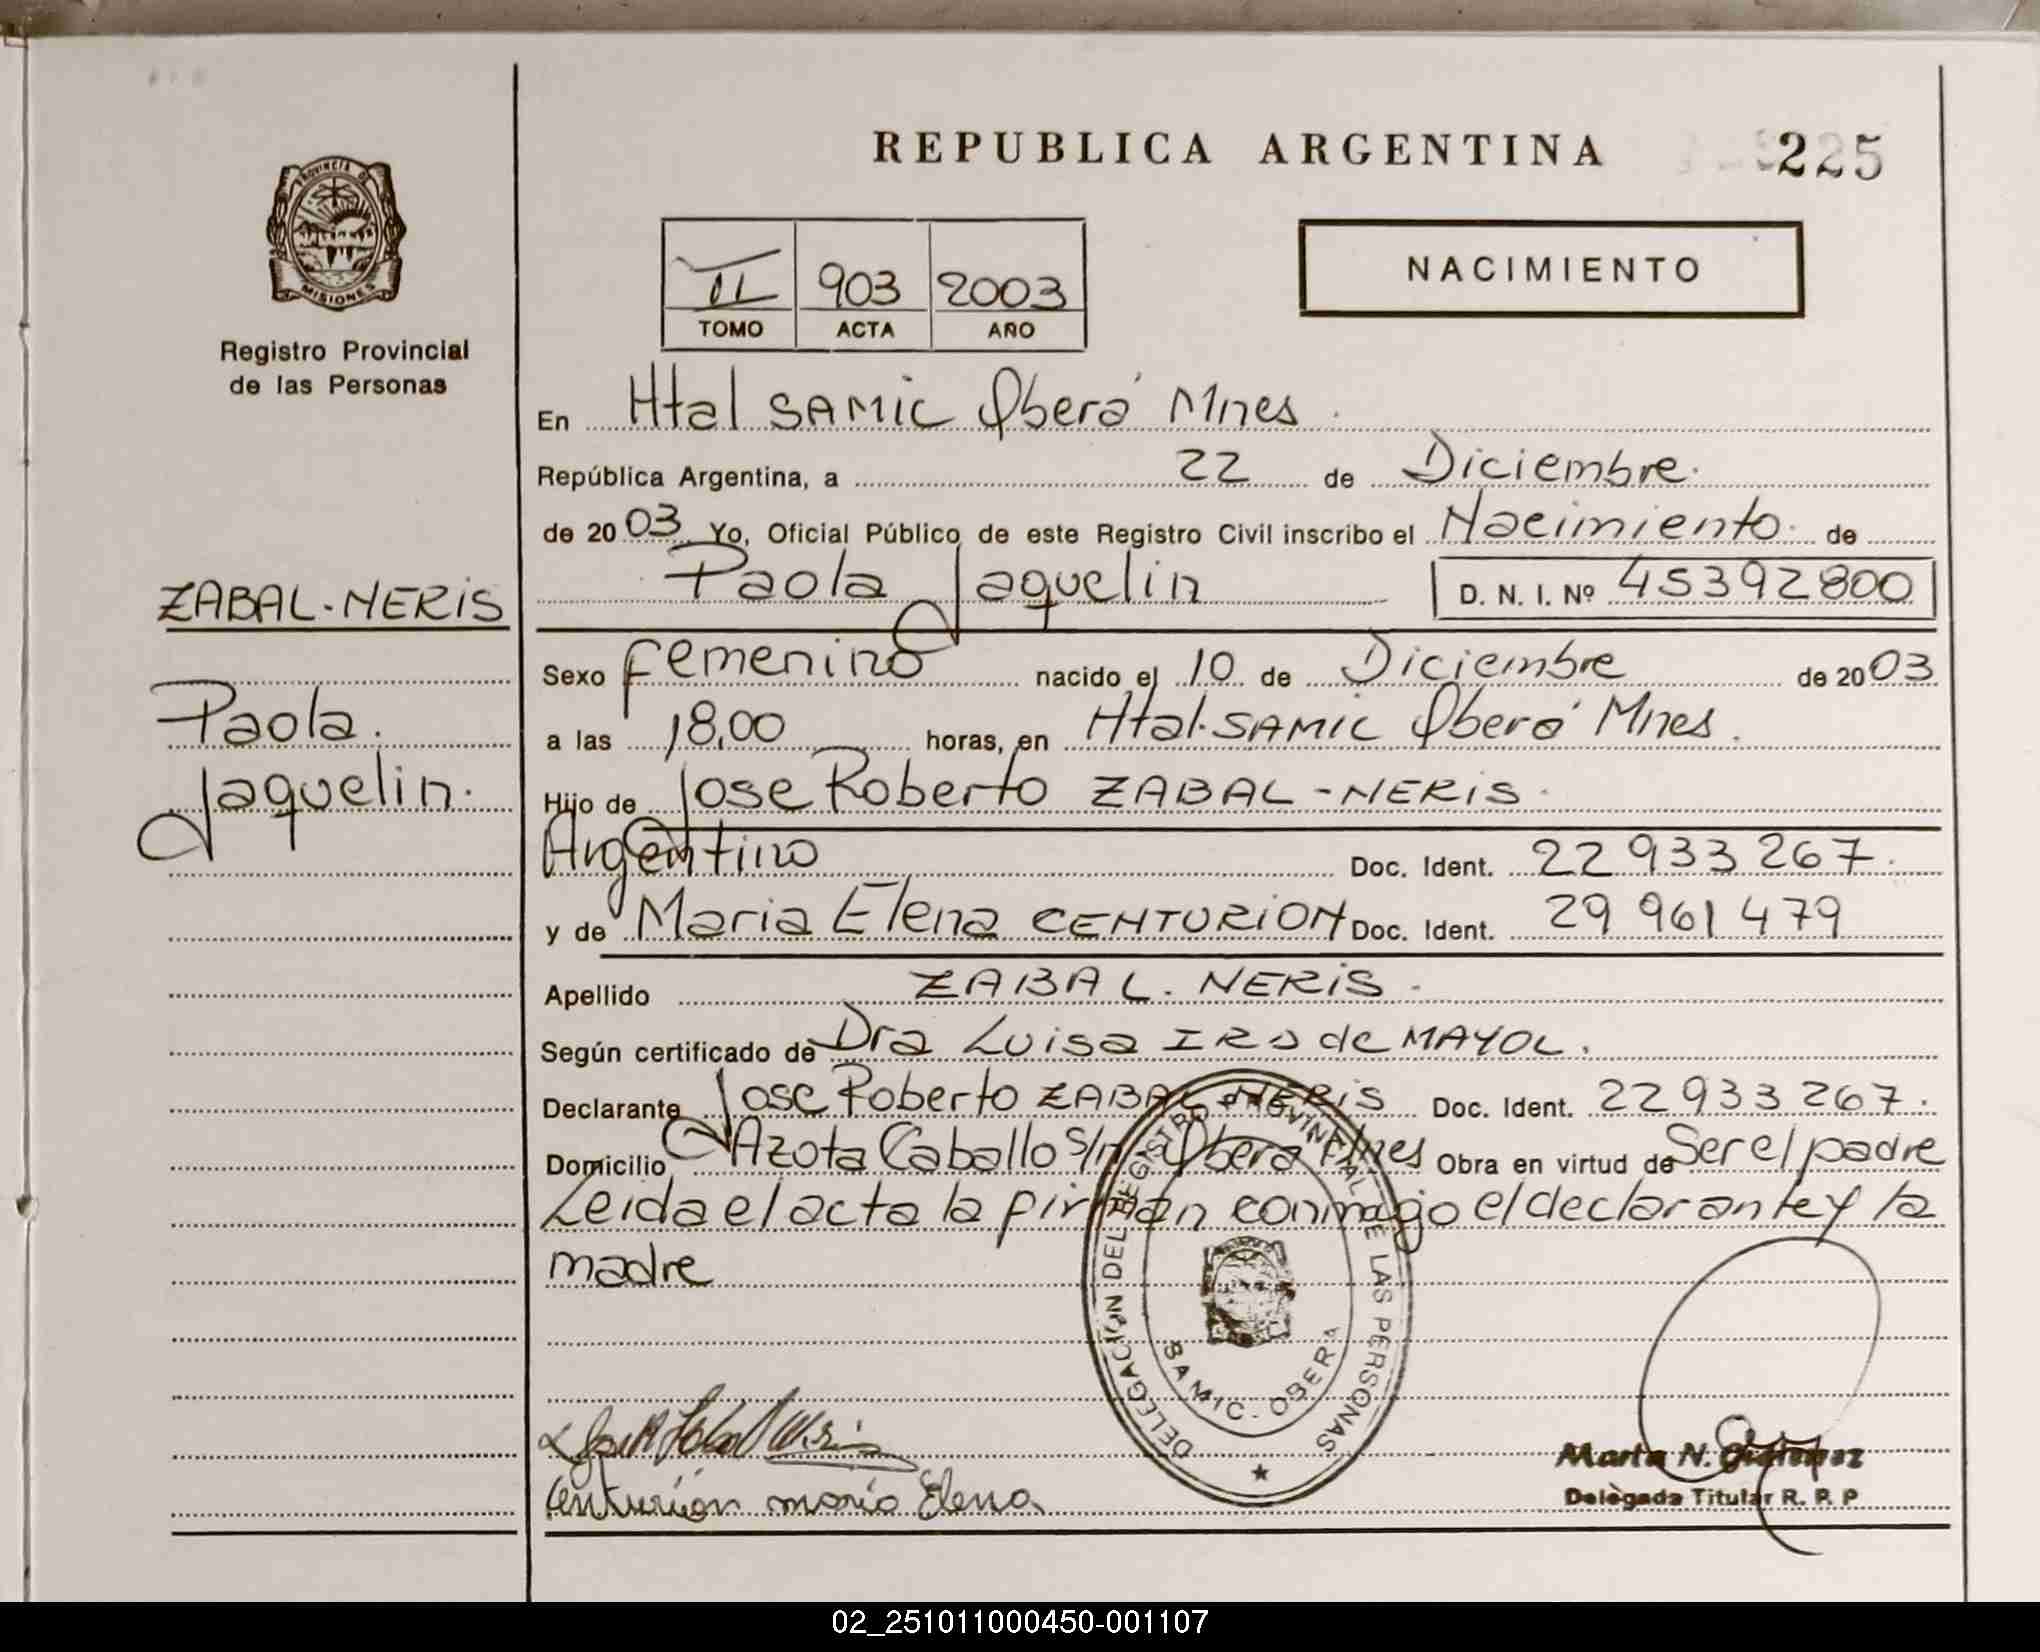 REPUBLICA ARGENTINA 225
PROVINCIA DE
MISIONES
Registro Provincial
de las Personas
II 903 2003
TOMO ACTA AÑO
NACIMIENTO
En Htal SAMIC Oberá Mnes.
República Argentina, a 22 de Diciembre.
de 20 03 Yo, Oficial Público de este Registro Civil inscribo el Nacimiento de
Paola Jaquelin D. N. I. Nº 45392800
ZABAL-NERIS
Paola.
Jaquelin.
Sexo Femenino nacido el 10 de Diciembre de 20 03
a las 18,00 horas, en Htal. SAMIC Oberá Mnes.
Hijo de Jose Roberto ZABAL-NERIS.
Argentino Doc. Ident. 22 933 267.
y de Maria Elena CENTURION Doc. Ident. 29 961 479
Apellido ZABAL. NERIS.
Según certificado de Dra Luisa de MAYOL.
Declarante Jose Roberto ZABAL NERIS Doc. Ident. 22 933 267.
Domicilio Azota Caballo s/n Oberá Mnes Obra en virtud de Ser el padre
Leida el acta la firman conmigo el declarante y la
madre
DELEGACION DEL REGISTRO PROVINCIAL DE LAS PERSONAS
SAMIC - OBERA
Centurión maria Elena.
Marta N.
Delegada Titular R. P. P
02_251011000450-001107